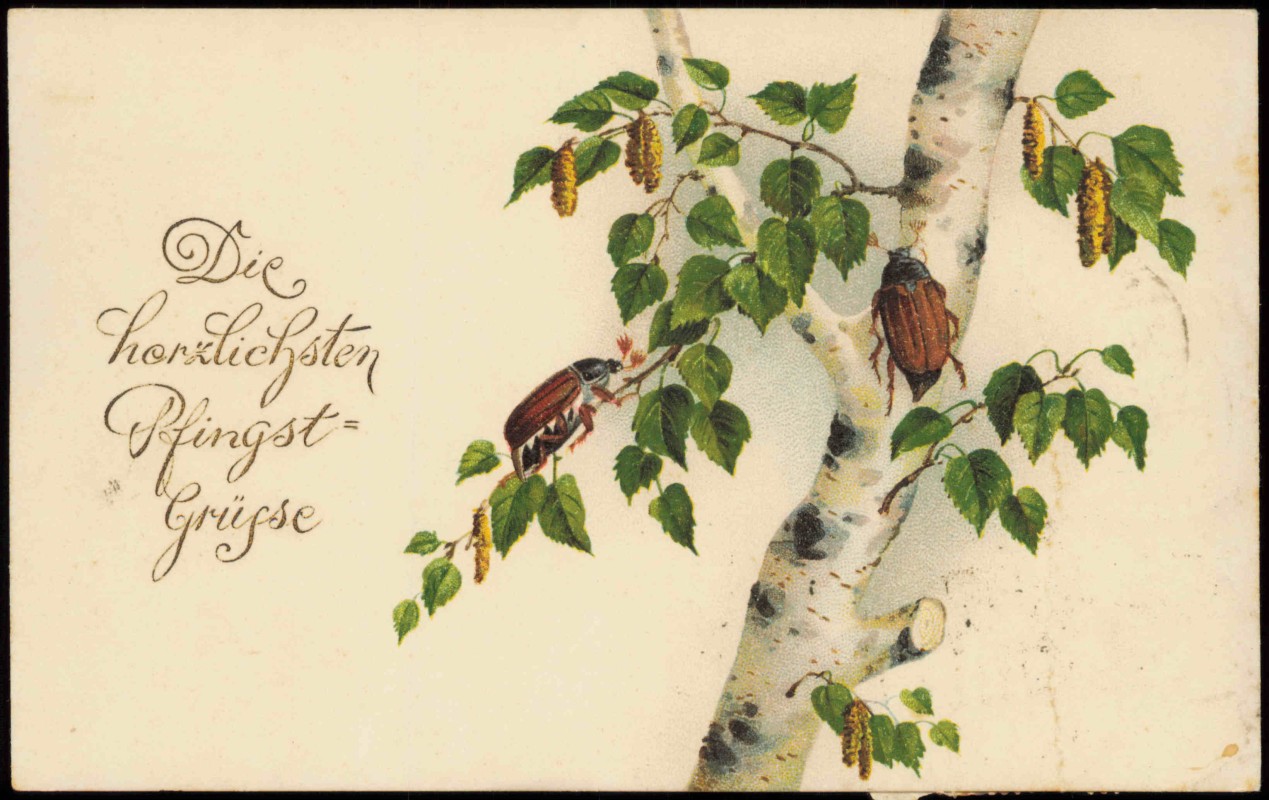 Die
herzlichsten
Pfingst=
Grüsse